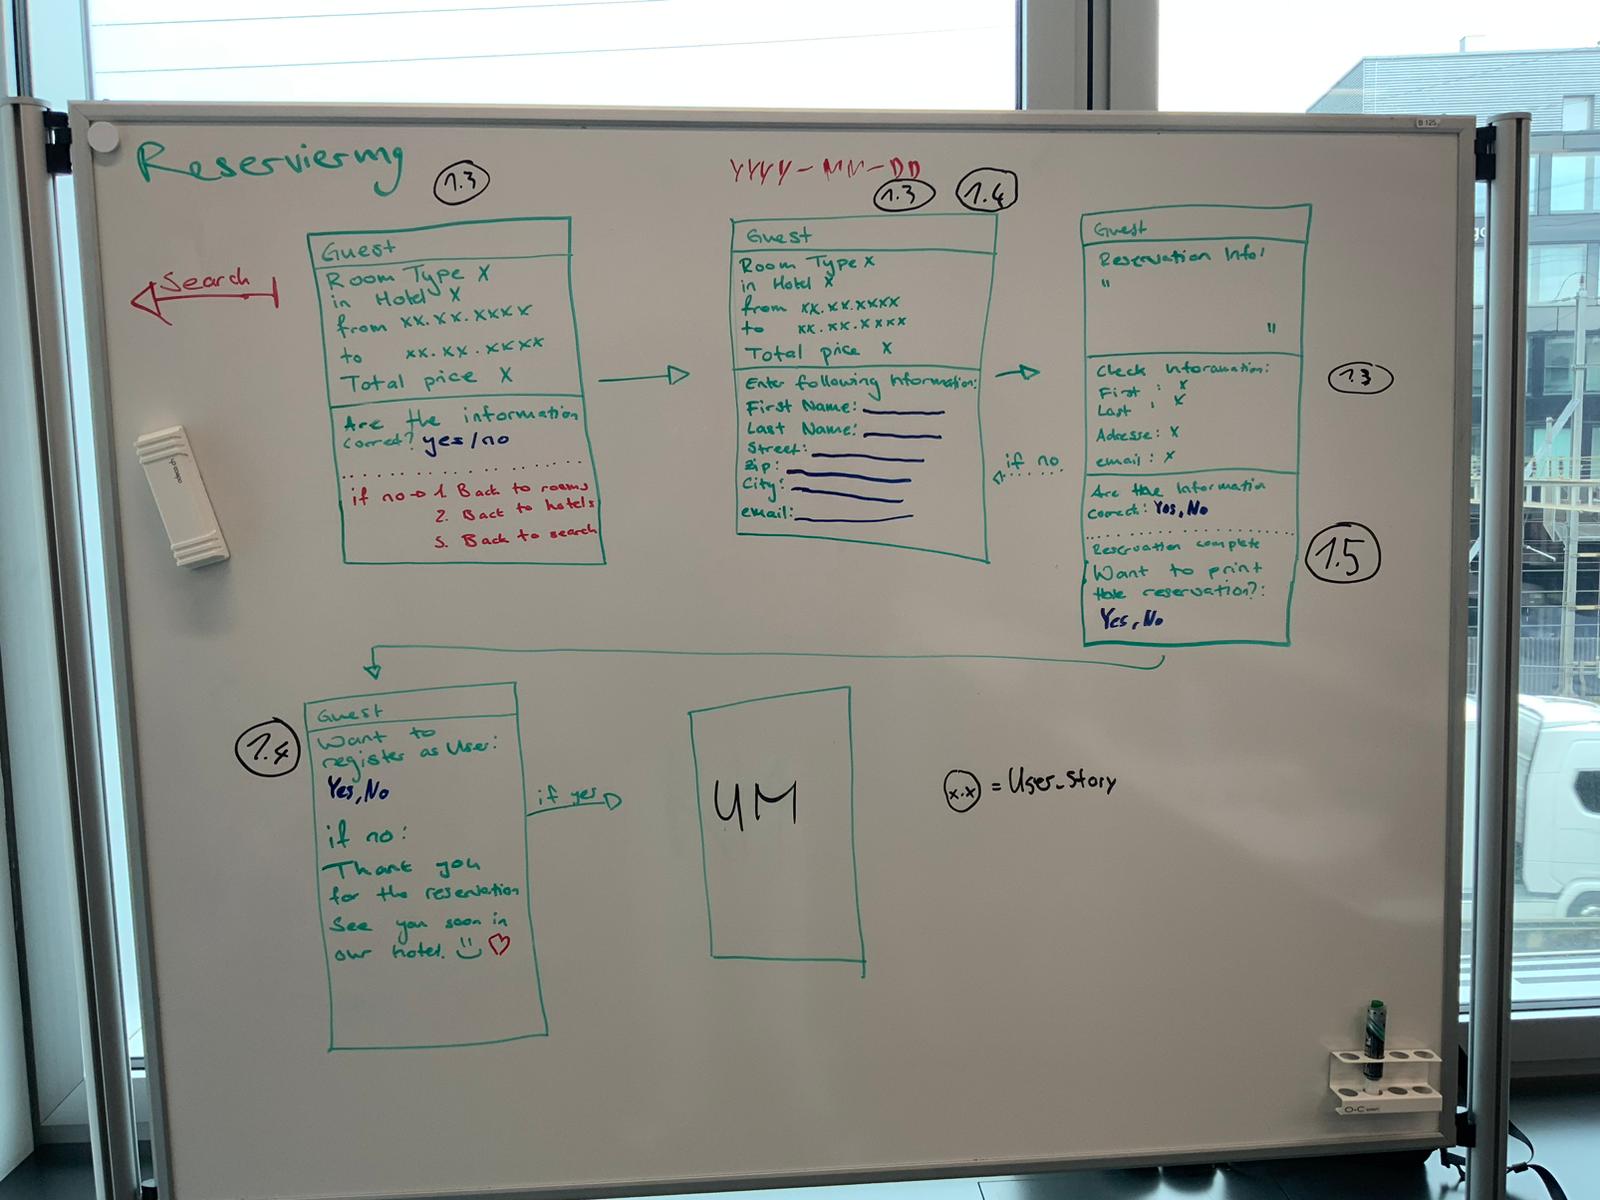 Reservierung
1.3
YYYY-MM-DD
1.3
1.4
B 125
Search
Guest
Room Type X
in Hotel X
from xx.xx.xxxx
to xx.xx.xxxx
Total price X
Are the information
correct? yes/no
if no → 1. Back to rooms
2. Back to hotels
3. Back to search
Guest
Room Type X
in Hotel X
from xx.xx.xxxx
to xx.xx.xxxx
Total price X
Enter following Information:
First Name:
Last Name:
Street:
Zip:
City:
email:
if no
Guest
Reservation Info:
"
"
Check Information:
First : x
Last : x
Adresse: x
email: x
1.3
Are the Information
correct: Yes, No
Reservation complete
Want to print
the reservation?:
Yes, No
1.5
1.4
Guest
Want to
register as User:
Yes, No
if no:
Thank you
for the reservation
See you soon in
our hotel. ♡
if yes
UM
x.x = User_Story